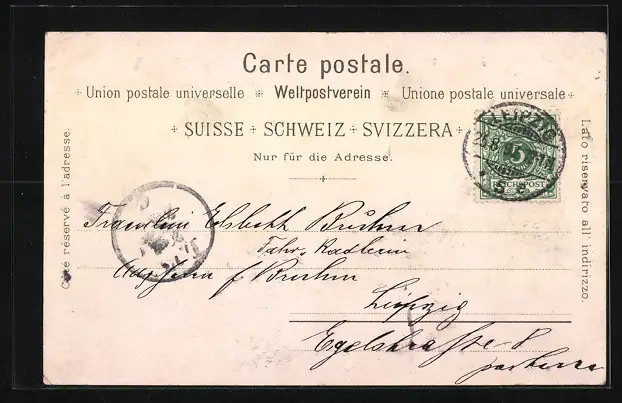 Carte postale.
Union postale universelle * Weltpostverein * Unione postale universale
SUISSE + SCHWEIZ + SVIZZERA
Nur für die Adresse.
Côté réservé à l'adresse.
Lato riservato all indirizzo.
LEIPZIG
5
REICHSPOST
Fräulein Elsbeth Bruhm
Leipzig
Egelstrasse 8
parterre